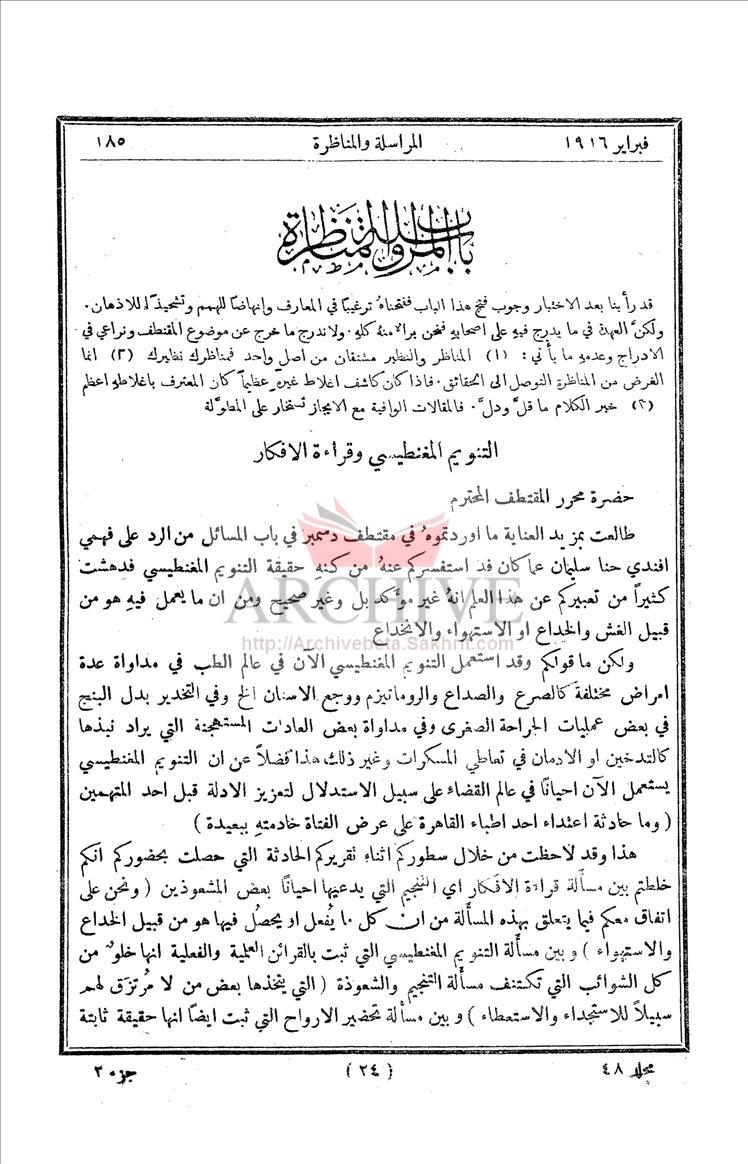 فبراير ١٩١٦ المراسلة والمناظرة ١٨٥
باب المراسلة والمناظرة
قد رأينا بعد الاختبار وجوب فتح هذا الباب ففتحناهُ ترغيبًا في المعارف وإنهاضًا للهمم وتشحيذًا للاذهان .
ولكنَّ العهدة في ما يدرج فيهِ على اصحابهِ فنحن برالا منهُ كلهِ . ولا ندرج ما خرج عن موضوع المقتطف ونراعي في
الادراج وعدمهِ ما يأتي : (١) المناظر والنظير مشتقان من اصل واحد فمناظرك نظيرك (٢) انما
الغرض من المناظرة التوصل الى الحقائق . فاذا كان كاشف اغلاط غيرهِ عظيمًا كان المعترف باغلاطهِ اعظم
(٣) خير الكلام ما قلَّ ودلَّ . فالمقالات الوافية مع الايجاز تستخار على المطوَّلة
التنويم المغنطيسي وقراءة الافكار
حضرة محرر المقتطف المحترم
طالعت بمزيد العناية ما اوردتموهُ في مقتطف دسمبر في باب المسائل من الرد على فهمي
افندي حنا سليمان عما كان قد استفسركم عنهُ من كنهِ حقيقة التنويم المغنطيسي فدهشت
كثيرًا من تعبيركم عن هذا العلم انهُ غير مؤكد بل وغير صحيح ومن ان ما يعمل فيهِ هو من
قبيل الغش والخداع او الاستهواء والانخداع
ولكن ما قولكم وقد استعمل التنويم المغنطيسي الآن في عالم الطب في مداواة عدة
امراض مختلفة كالصرع والصداع والروماتيزم ووجع الاسنان الخ وفي التخدير بدل البنج
في بعض عمليات الجراحة الصغرى وفي مداواة بعض العادات المستهجنة التي يراد نبذها
كالتدخين او الادمان في تعاطي المسكرات وغير ذلك هذا فضلاً عن ان التنويم المغنطيسي
يستعمل الآن احيانًا في عالم القضاء على سبيل الاستدلال لتعزيز الادلة قبل احد المتهمين
( وما حادثة اعتداء احد اطباء القاهرة على عرض الفتاة خادمتهِ ببعيدة )
هذا وقد لاحظت من خلال سطوركم اثناء تقريركم الحادثة التي حصلت بحضوركم انكم
خلطتم بين مسألة قراءة الافكار اي التنجيم التي يدعيها احيانًا بعض المشعوذين ( ونحن على
اتفاق معكم فيما يتعلق بهذه المسألة من ان كل ما يُفعل او يحصُل فيها هو من قبيل الخداع
والاستهواء ) وبين مسألة التنويم المغنطيسي التي ثبت بالقرائن العلمية والفعلية انها خلوٌ من
كل الشوائب التي تكتنف مسألة التنجيم والشعوذة ( التي يتخذها بعض من لا مُرتزَق لهم
سبيلاً للاستجداء والاستعطاء ) وبين مسألة تحضير الارواح التي ثبت ايضًا انها حقيقة ثابتة
مجلد ٤٨ ( ٢٤ ) جزء ٢
ARCHIVE
http://Archivebeta.Sakhrit.com